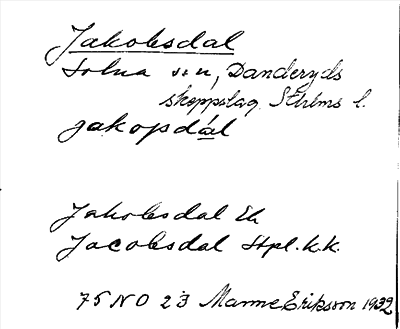 Jakobsdal
Solna sn, Danderyds
skeppslag, Sthlms l.
jakopsdál
Jakobsdal Ek
Jacobsdal Stpl. k.k.
75 NO 23 Manne Eriksson 1932